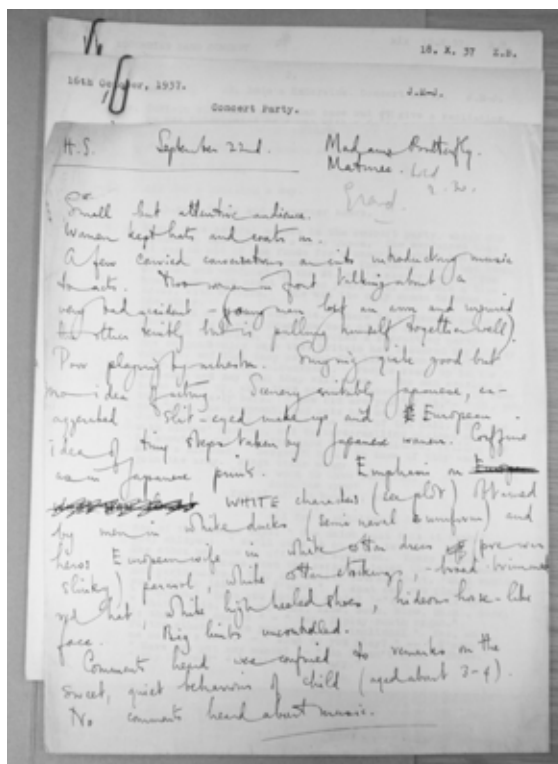 18. X. 37 Z.B.
16th October, 1937. J.E.J.
Concert Party.
H.S. September 22nd. Madame Butterfly.
Matinee.
2.30.
Grand.
Small but attentive audience.
Women kept hats and coats on.
A few carried conversations on into introducing music
to acts. Two women in front talking about a
very bad accident - (young man lost an arm and injured
the other but is pulling himself together well).
Poor playing by orchestra. Singing quite good but
no idea of acting. Scenery suitably Japanese, ex-
aggerated slit-eyed make up and European
idea of tiny steps taken by Japanese women. Coiffure
as in Japanese prints. Emphasis on
WHITE characters (see plot) obtained
by men in white ducks (semi naval uniform) and
heros European wife in white cotton dress (pre war
slinky) parasol, white cotton stockings, broad brimmed
red hat, white high heeled shoes, hideous horse-like
face. Big limbs uncontrolled.
Comment heard was confined to remarks on the
sweet, quiet behaviour of child (aged about 3-4).
No comments heard about music.